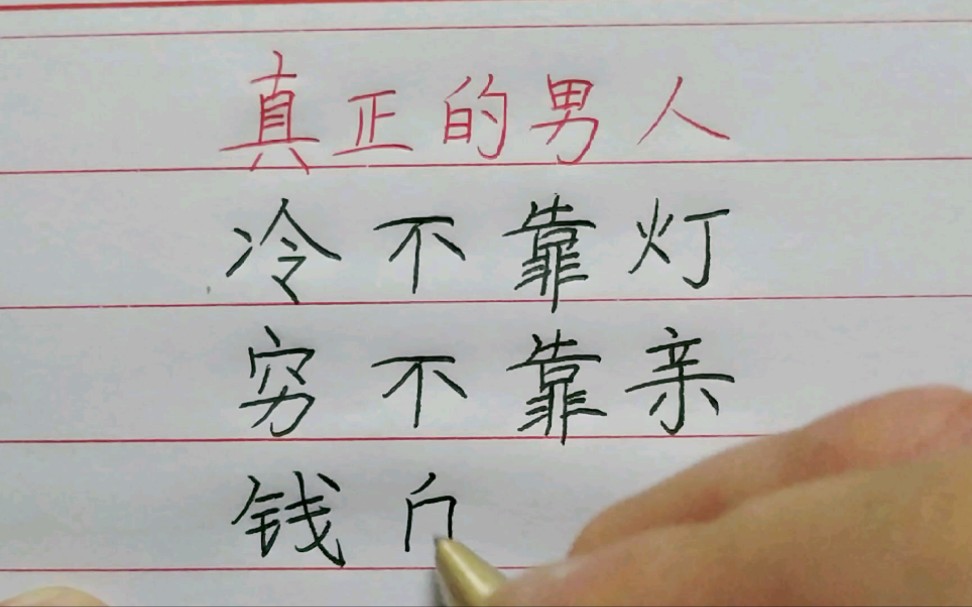 真正的男人
冷不靠灯
穷不靠亲
钱